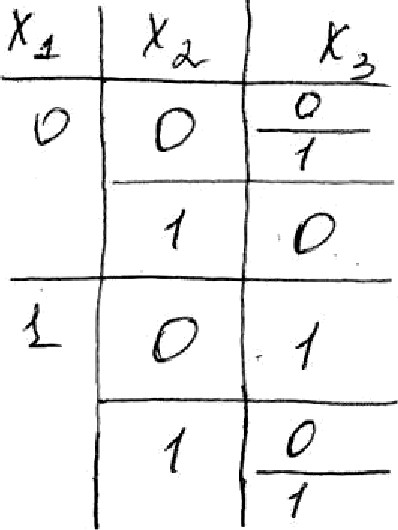 X1 X2 X3
0 0 0
1
1 0
1 0 1
1 0
1